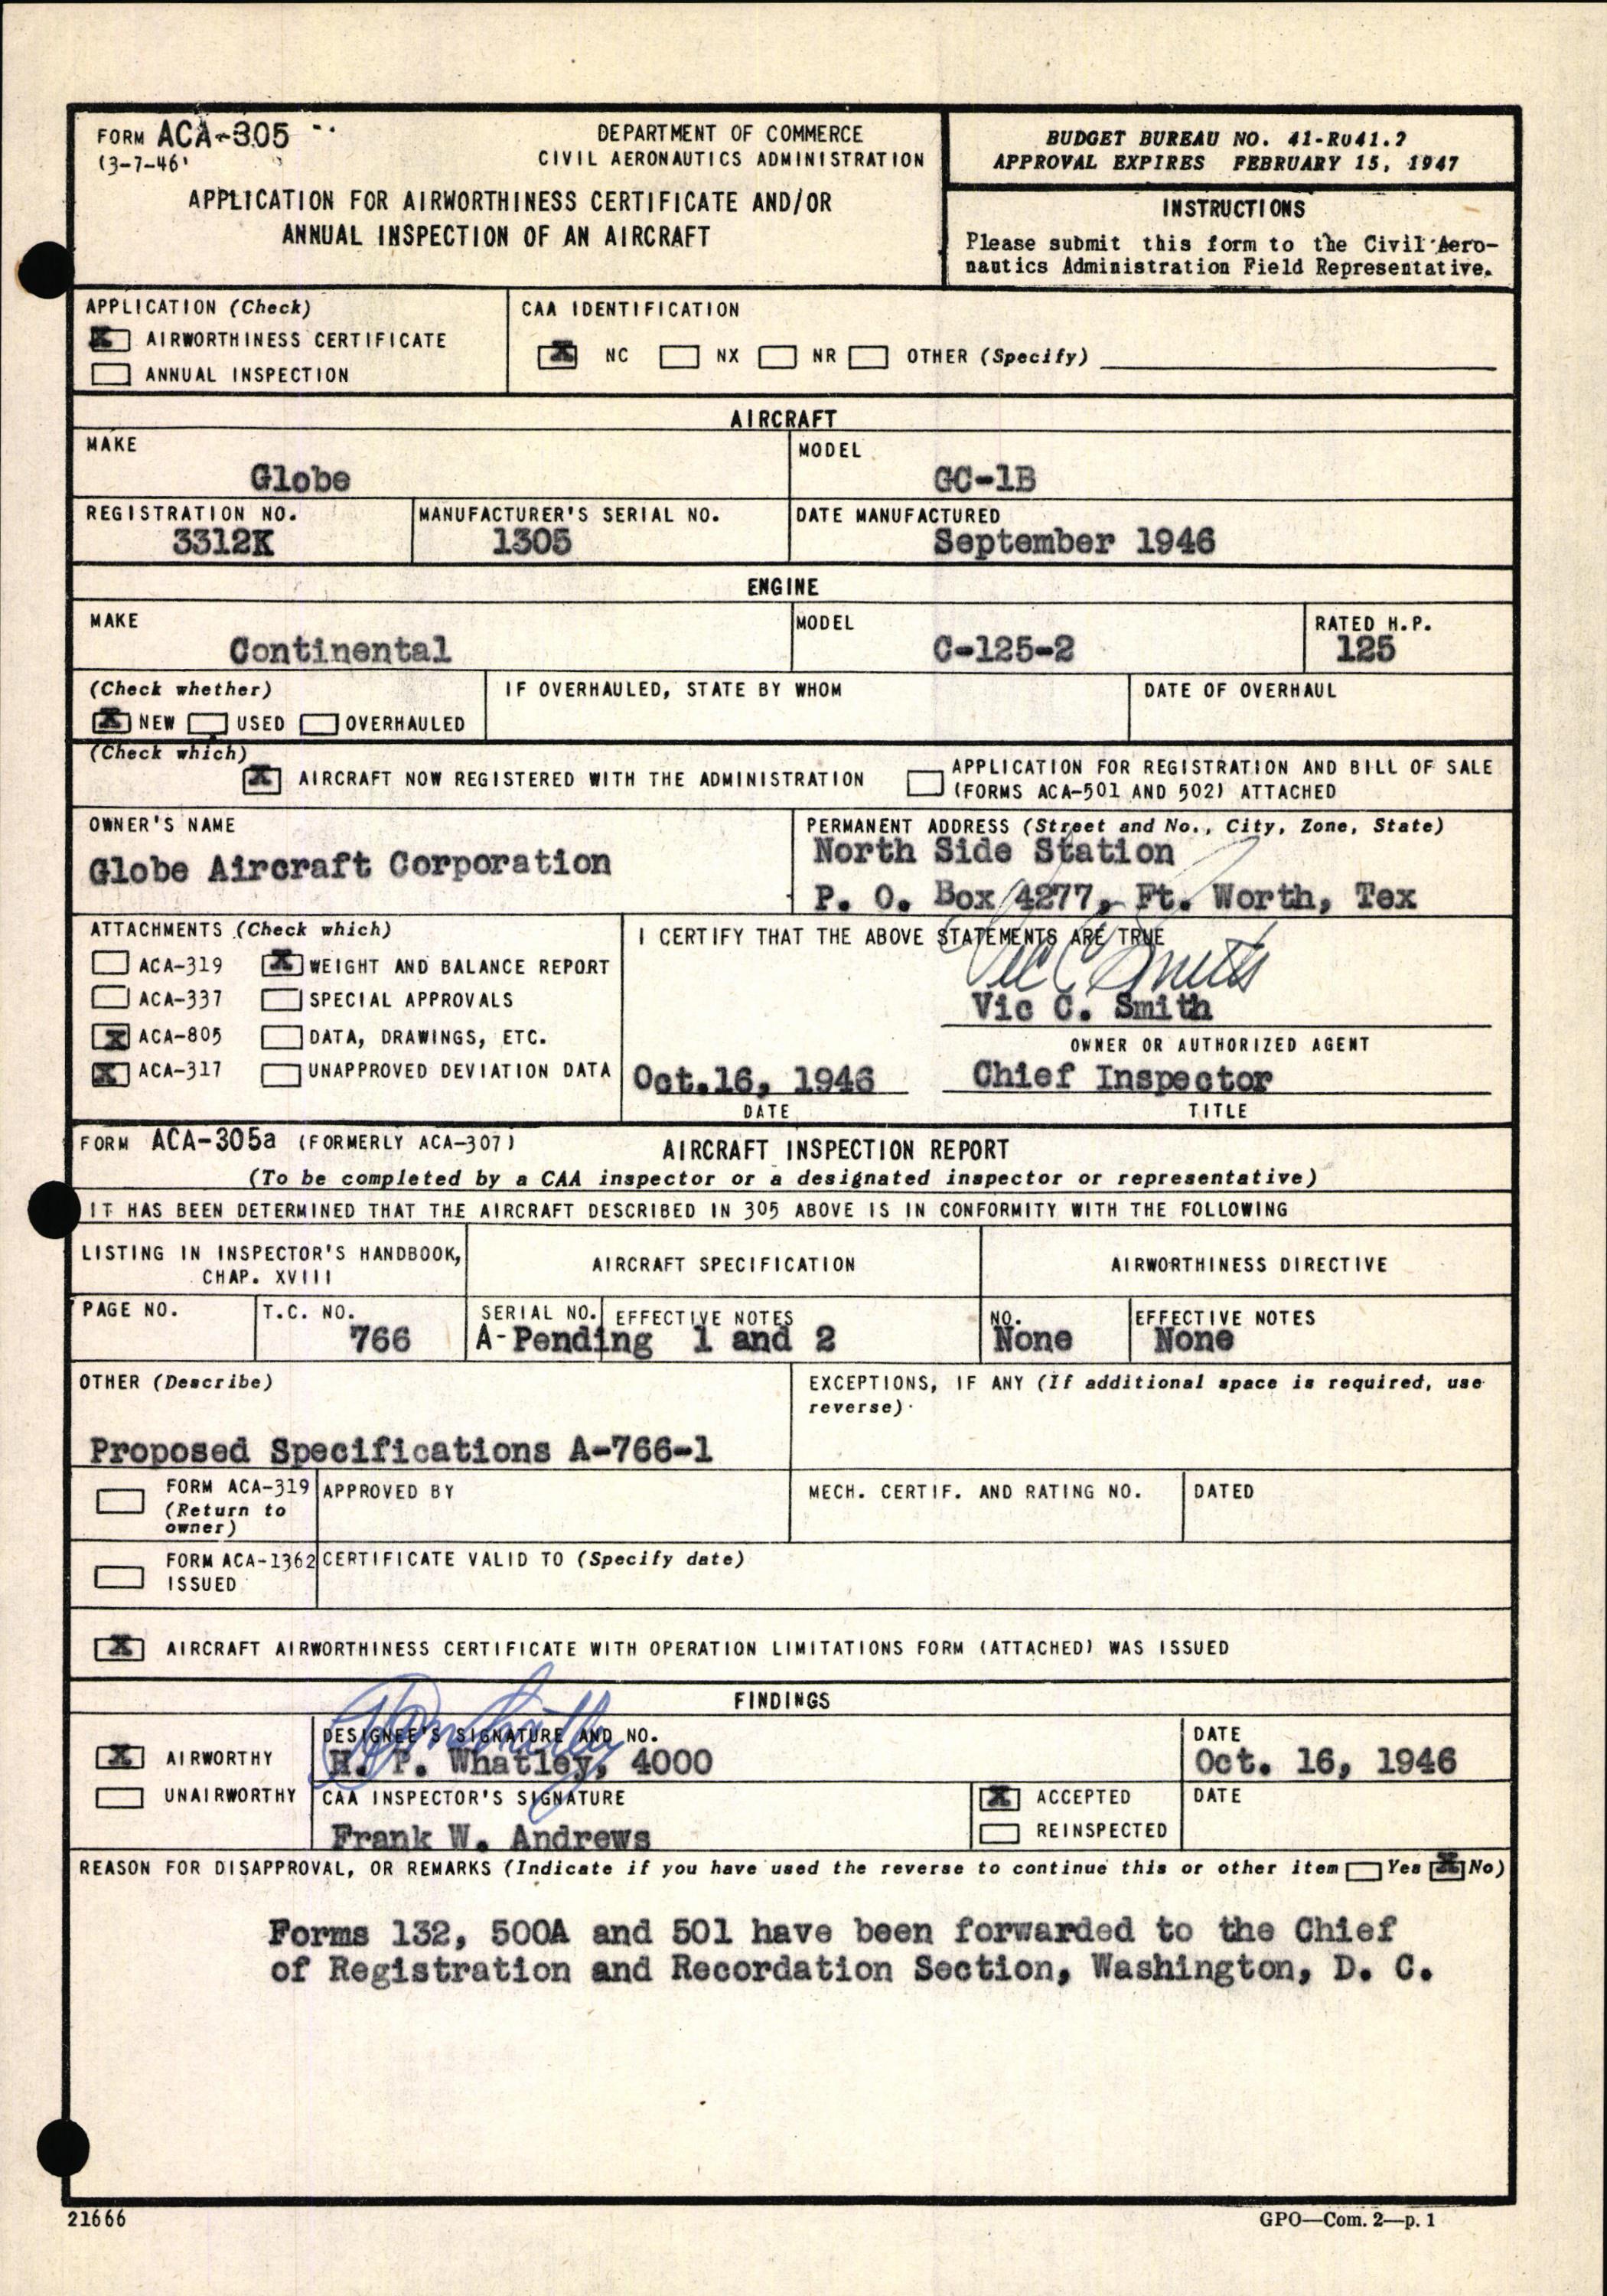 FORM ACA-305
(3-7-46)
DEPARTMENT OF COMMERCE
CIVIL AERONAUTICS ADMINISTRATION
APPLICATION FOR AIRWORTHINESS CERTIFICATE AND/OR
ANNUAL INSPECTION OF AN AIRCRAFT
BUDGET BUREAU NO. 41-R041.2
APPROVAL EXPIRES FEBRUARY 15, 1947
INSTRUCTIONS
Please submit this form to the Civil Aero-
nautics Administration Field Representative.
APPLICATION (Check)
X AIRWORTHINESS CERTIFICATE
ANNUAL INSPECTION
CAA IDENTIFICATION
X NC NX NR OTHER (Specify)
AIRCRAFT
MAKE
Globe
MODEL
GC-1B
REGISTRATION NO.
3312K
MANUFACTURER'S SERIAL NO.
1305
DATE MANUFACTURED
September 1946
ENGINE
MAKE
Continental
MODEL
C-125-2
RATED H.P.
125
(Check whether)
X NEW USED OVERHAULED
IF OVERHAULED, STATE BY WHOM
DATE OF OVERHAUL
(Check which)
X AIRCRAFT NOW REGISTERED WITH THE ADMINISTRATION
APPLICATION FOR REGISTRATION AND BILL OF SALE
(FORMS ACA-501 AND 502) ATTACHED
OWNER'S NAME
Globe Aircraft Corporation
PERMANENT ADDRESS (Street and No., City, Zone, State)
North Side Station
P. O. Box 4277, Ft. Worth, Tex
ATTACHMENTS (Check which)
ACA-319 X WEIGHT AND BALANCE REPORT
ACA-337 SPECIAL APPROVALS
X ACA-805 DATA, DRAWINGS, ETC.
X ACA-317 UNAPPROVED DEVIATION DATA
I CERTIFY THAT THE ABOVE STATEMENTS ARE TRUE
Vic C Smith
Vic C. Smith
OWNER OR AUTHORIZED AGENT
Oct.16, 1946 Chief Inspector
DATE TITLE
FORM ACA-305a (FORMERLY ACA-307) AIRCRAFT INSPECTION REPORT
(To be completed by a CAA inspector or a designated inspector or representative)
IT HAS BEEN DETERMINED THAT THE AIRCRAFT DESCRIBED IN 305 ABOVE IS IN CONFORMITY WITH THE FOLLOWING
LISTING IN INSPECTOR'S HANDBOOK,
CHAP. XVIII
AIRCRAFT SPECIFICATION
AIRWORTHINESS DIRECTIVE
PAGE NO.
T.C. NO.
766
SERIAL NO. EFFECTIVE NOTES
A-Pending 1 and 2
NO.
None
EFFECTIVE NOTES
None
OTHER (Describe)
Proposed Specifications A-766-1
EXCEPTIONS, IF ANY (If additional space is required, use
reverse)
FORM ACA-319
(Return to
owner)
APPROVED BY
MECH. CERTIF. AND RATING NO.
DATED
FORM ACA-1362
ISSUED
CERTIFICATE VALID TO (Specify date)
X AIRCRAFT AIRWORTHINESS CERTIFICATE WITH OPERATION LIMITATIONS FORM (ATTACHED) WAS ISSUED
FINDINGS
X AIRWORTHY
UNAIRWORTHY
DESIGNEE'S SIGNATURE AND NO.
H. P. Whatley, 4000
DATE
Oct. 16, 1946
CAA INSPECTOR'S SIGNATURE
Frank W. Andrews
X ACCEPTED
REINSPECTED
DATE
REASON FOR DISAPPROVAL, OR REMARKS (Indicate if you have used the reverse to continue this or other item Yes X No)
Forms 132, 500A and 501 have been forwarded to the Chief
of Registration and Recordation Section, Washington, D. C.
21666
GPO—Com. 2—p. 1